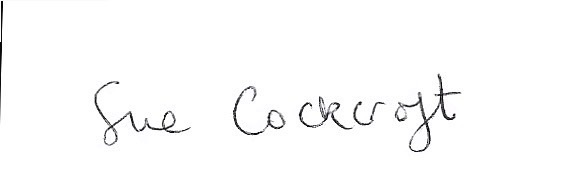 Sue Cockcroft